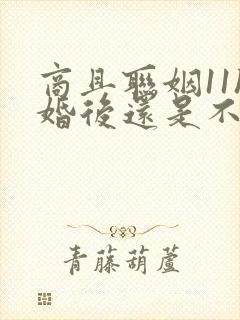 商且聯姻11
婚後還是不
青藤葫蘆